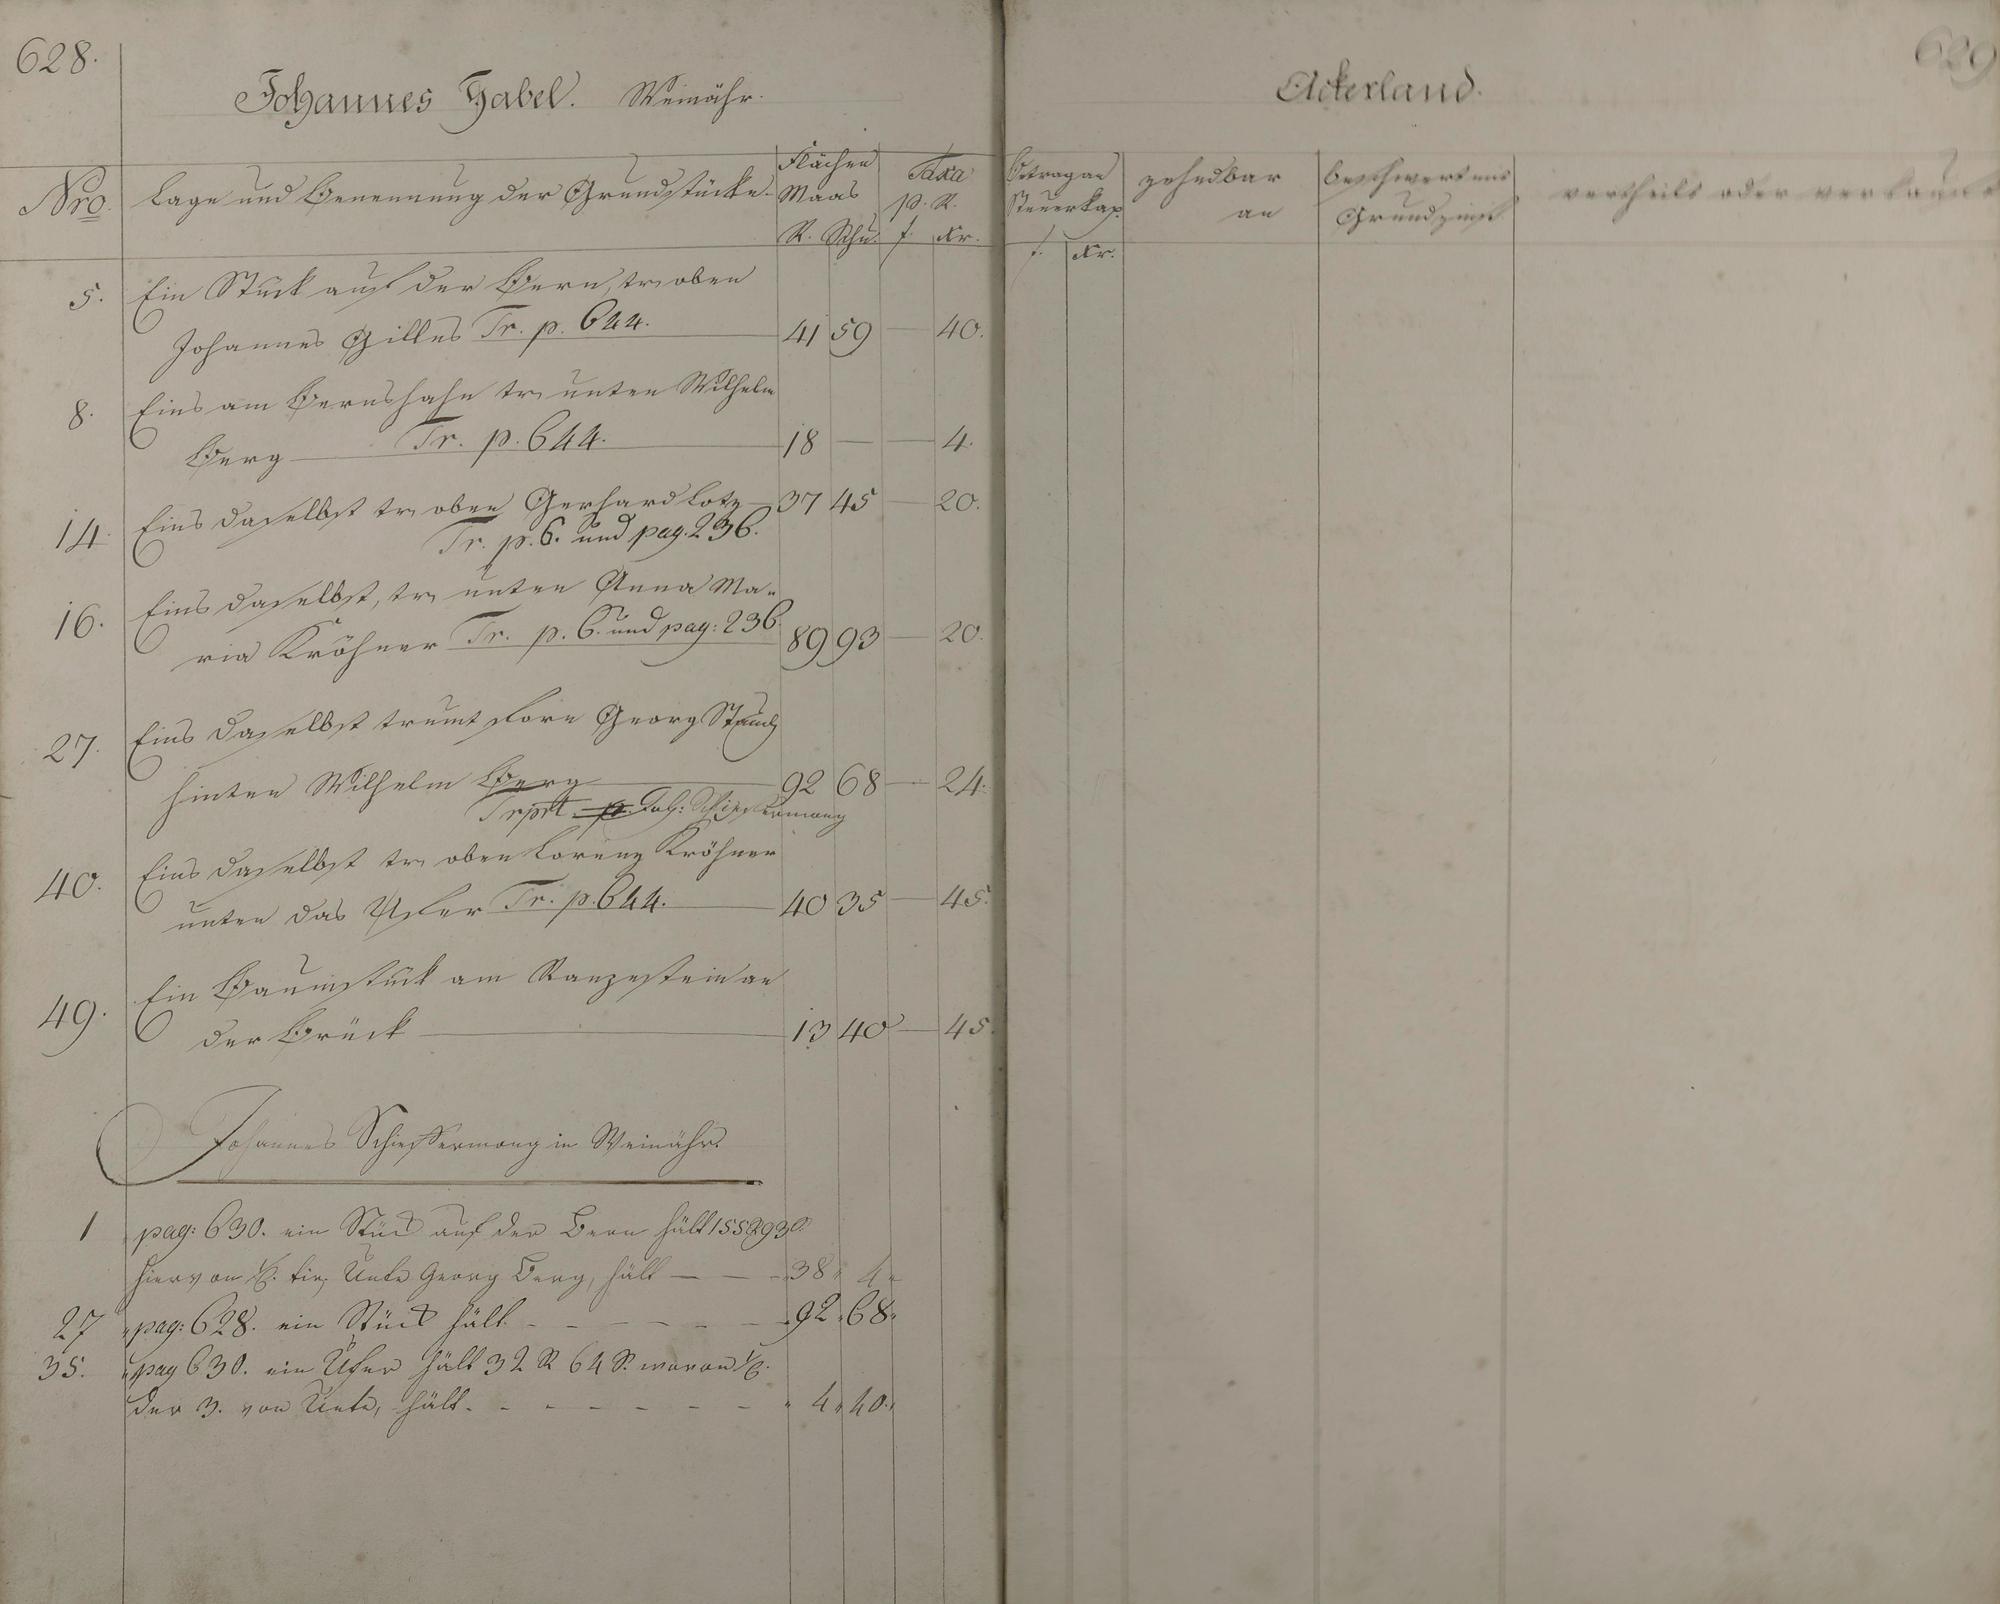 628.
Johannes Gabel. Weinähr.
Nro.
Lage und Benennung der Grundstücke.
Flächen Maas
R. Schu.
Taxa p. R.
f. Kr.
5. Ein Stück auf der Bern, tr. oben
Johannes Gilles Tr. p. 644. 41 59 — 40.
8. Eins am Bernshahn tr. unten Wilhelm
Berg Tr. p. 644. 18 — — 4.
14. Eins daselbst tr. oben Gerhard Lotz 37 45 — 20.
Tr. p. 6. und pag. 236.
16. Eins daselbst, tr. unten Anna Ma-
ria Kröhner Tr. p. 6. und pag: 236. 89 93 — 20.
27. Eins daselbst trumt forn Georg
hinten Wilhelm Berg 92 68 — 24.
Trprt. p. Joh: Schieffermong
40. Eins daselbst tr. oben Lorenz Kröhner
unten das Ufer Tr. p. 644. 40 35 — 45.
49. Ein Baumstück am Ranzestein an
der Brück 13 40 — 45.
Johannes Schieffermong in Weinähr.
1 pag: 630. ein Stück auf der Bern hält 155 R 93
hiervon Unte Georg Berg, hält — — 38 4
27 pag: 628. ein Stück hält - - - - - 92 68
35. pag 630. ein Ufer hält 32 R 64 S. wovon
der 3. von Unte, hält - - - - - - 4 40.
629
Ackerland.
Betrag an Steuerkap.
f. Kr.
zehndbar an
beschwert mit Grundzinß
vertheilt oder verkauft